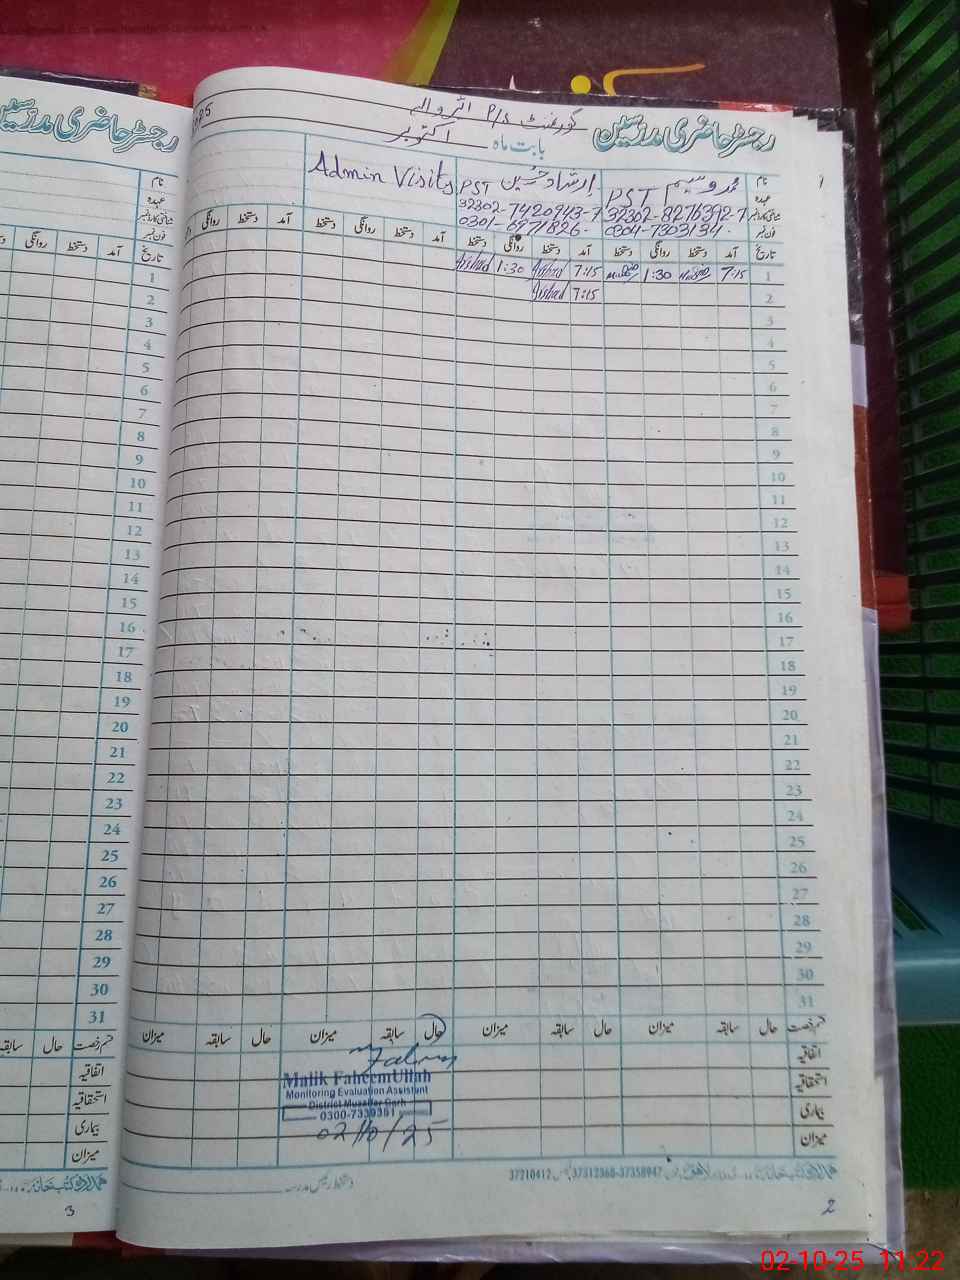 رجسٹر حاضری مدرسین
گورنمنٹ P/S اتروالے
بابت ماہ اکتوبر
نام
عہدہ
شناختی کارڈ نمبر
فون نمبر
محمد وسیم PST
32302-8276392-7
0304-7303134
ارشاد حسین PST
32302-7420943-7
0301-6971826
Admin Visits
تاریخ آمد دستخط روانگی دستخط آمد دستخط روانگی دستخط آمد دستخط روانگی دستخط آمد دستخط روانگی
1 7:15 1:30 7:15 Irshad 1:30 Irshad
2 7:15 Irshad
3
4
5
6
7
8
9
10
11
12
13
14
15
16
17
18
19
20
21
22
23
24
25
26
27
28
29
30
31
قسم رخصت حال سابقہ میزان حال سابقہ میزان حال سابقہ میزان حال سابقہ میزان
اتفاقیہ
استحقاقیہ
بیماری
میزان
Malik FaheemUllah
Monitoring Evaluation Assistant
District Muzaffar Garh
02/10/25
دستخط رئیس مدرسہ
37210412 37312368-37358947
2
رجسٹر حاضری مدرسین
نام
عہدہ
شناختی کارڈ نمبر
فون نمبر
تاریخ آمد دستخط روانگی
1
2
3
4
5
6
7
8
9
10
11
12
13
14
15
16
17
18
19
20
21
22
23
24
25
26
27
28
29
30
31
قسم رخصت حال سابقہ
اتفاقیہ
استحقاقیہ
بیماری
میزان
3
02-10-25 11:22